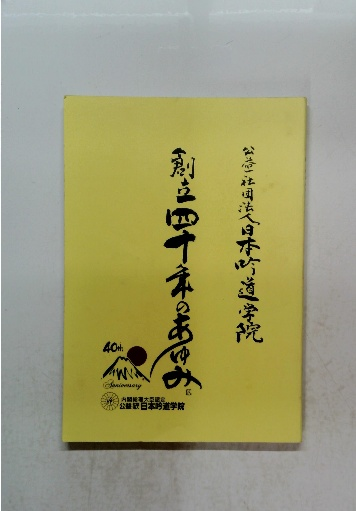 公益社団法人日本吟道学院
創立四十年のあゆみ
40th
Anniversary
内閣総理大臣認定
日本吟道学院